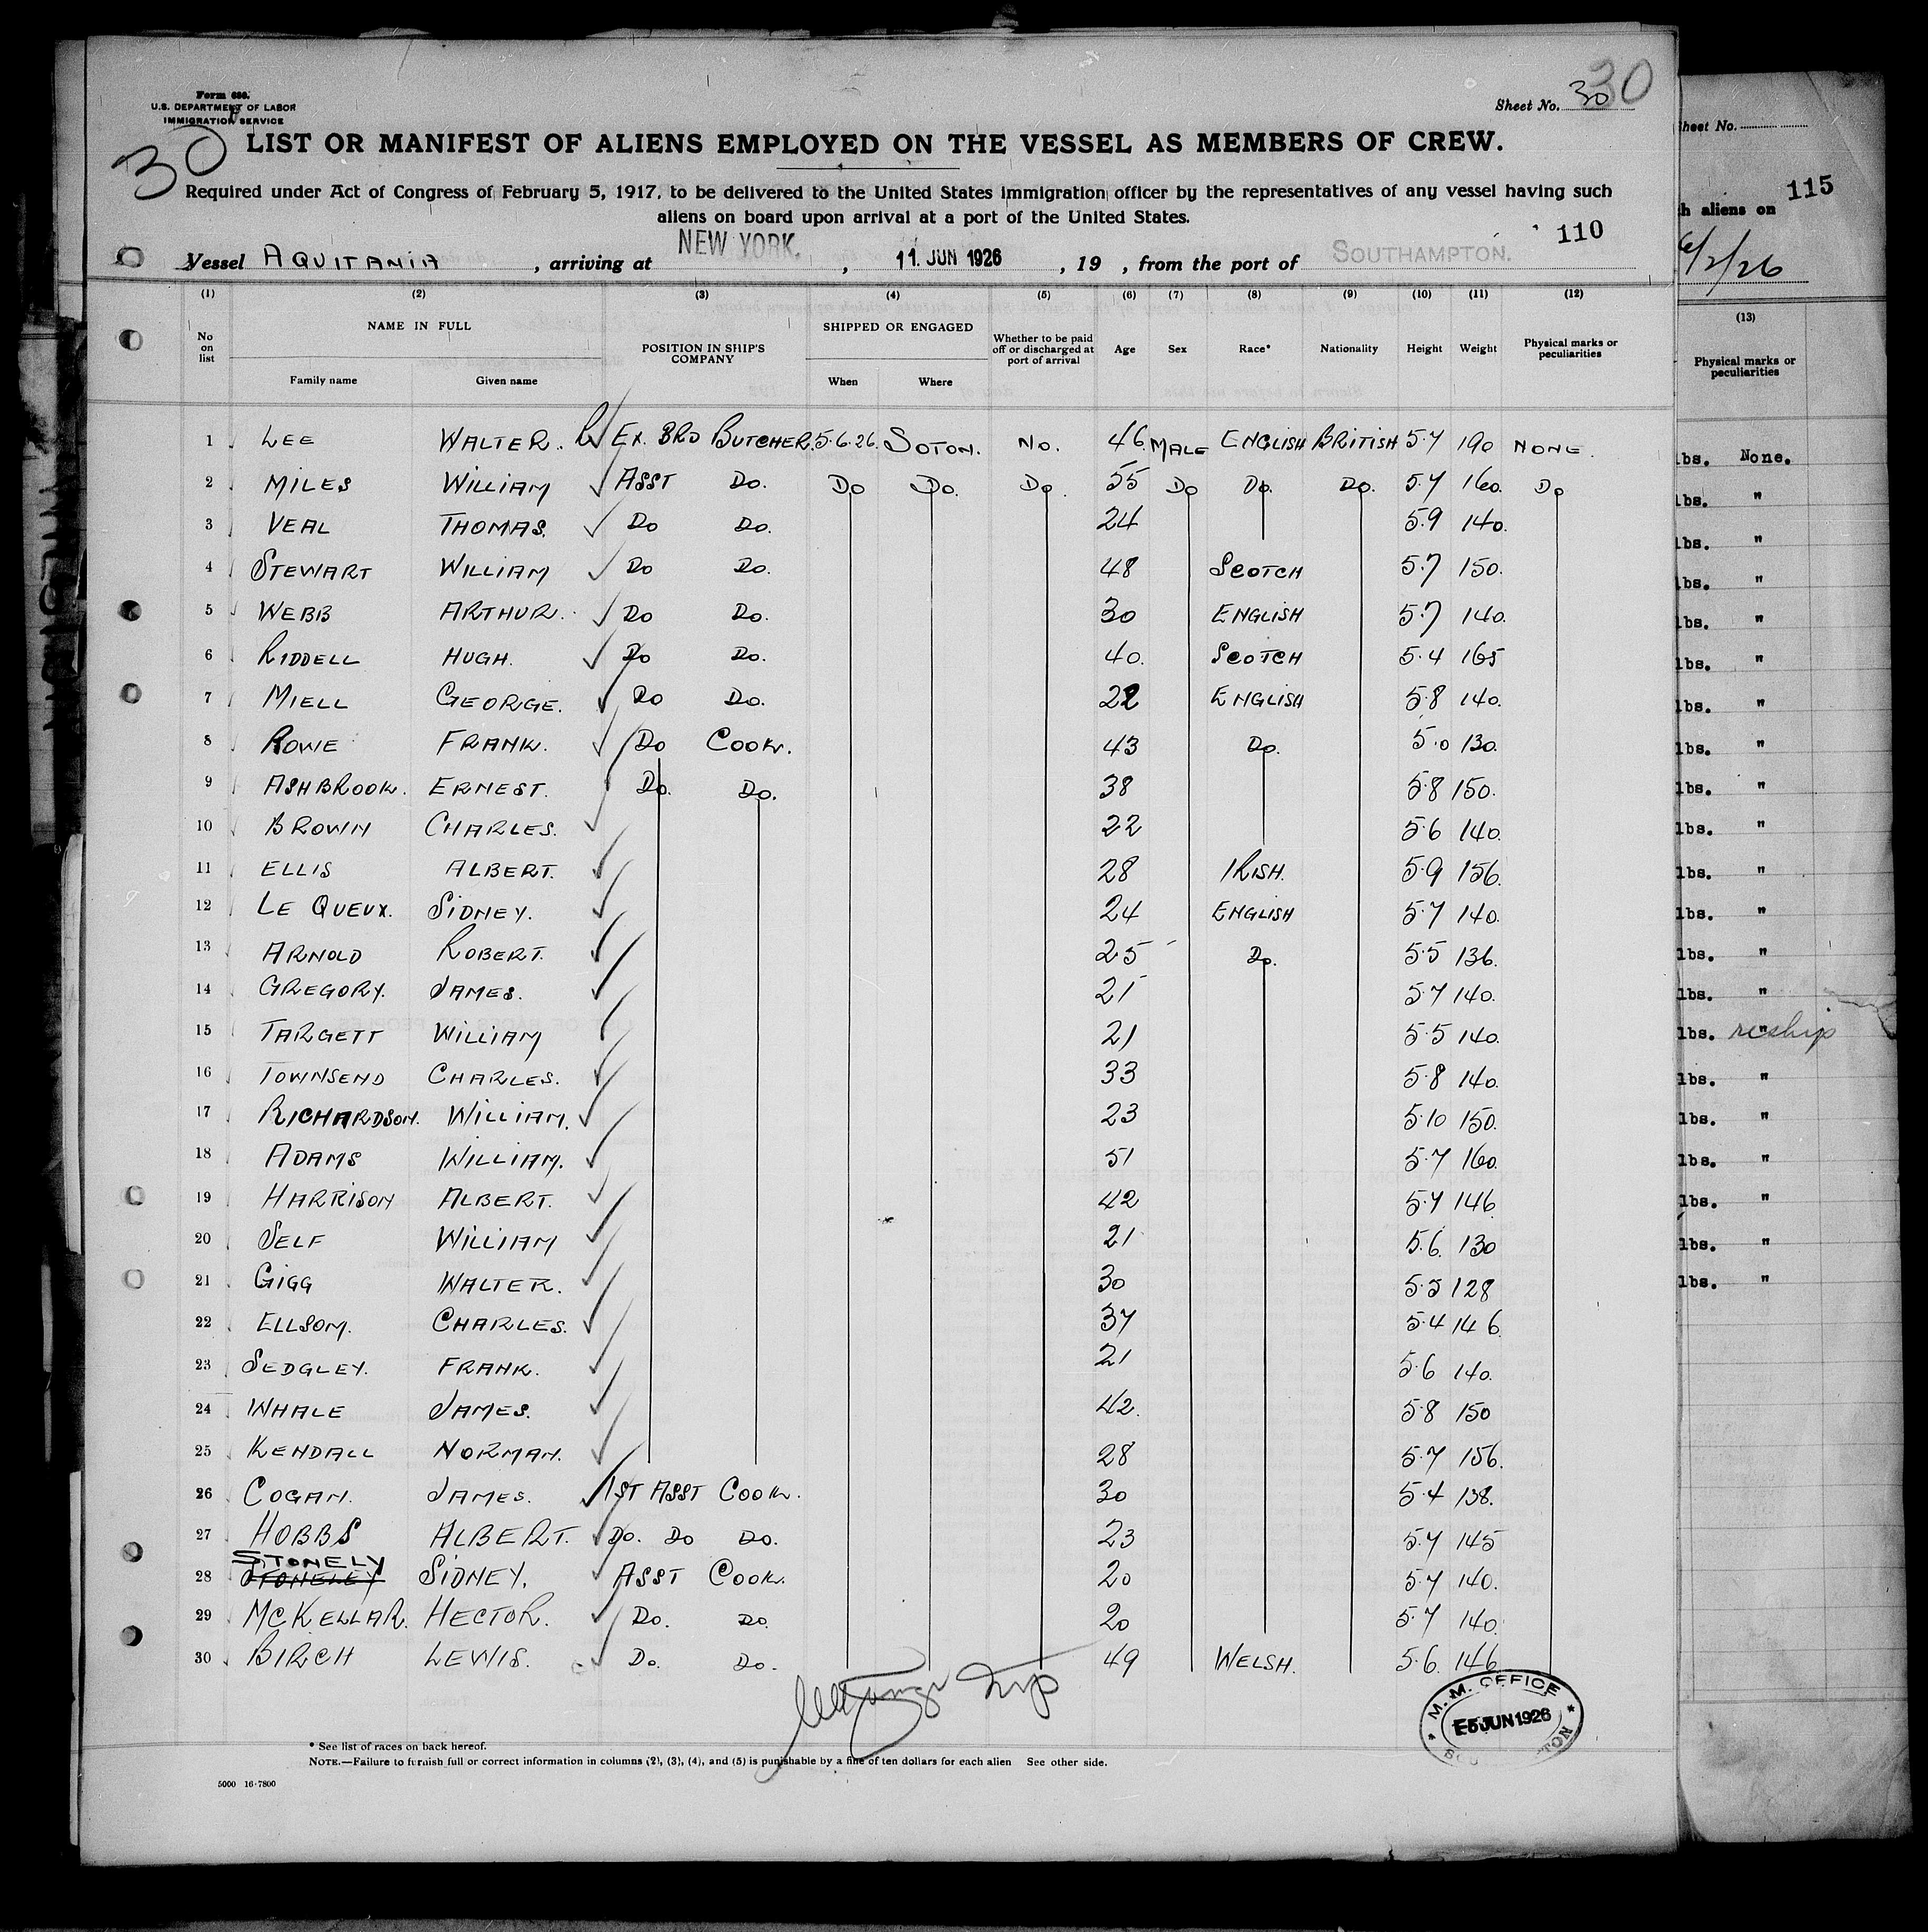 Form 680.
U.S. DEPARTMENT OF LABOR
IMMIGRATION SERVICE
Sheet No. 30 30
30
LIST OR MANIFEST OF ALIENS EMPLOYED ON THE VESSEL AS MEMBERS OF CREW.
Required under Act of Congress of February 5, 1917, to be delivered to the United States immigration officer by the representatives of any vessel having such
aliens on board upon arrival at a port of the United States.
110
Vessel AQUITANIA, arriving at NEW YORK, 11 JUN 1926, 19 , from the port of SOUTHAMPTON.
(1) (2) (3) (4) (5) (6) (7) (8) (9) (10) (11) (12)
No on list NAME IN FULL POSITION IN SHIP'S COMPANY SHIPPED OR ENGAGED Whether to be paid off or discharged at port of arrival Age Sex Race* Nationality Height Weight Physical marks or peculiarities
Family name Given name When Where
1 LEE WALTER. Ex. BRD BUTCHER. 5.6.26. SOTON. NO. 46. MALE ENGLISH BRITISH 5.7 190 NONE.
2 MILES WILLIAM ASST DO. DO DO. DO. 55 DO DO. DO. 5.7 160. DO
3 VEAL THOMAS. DO DO. 24 5.9 140.
4 STEWART WILLIAM DO DO. 48 SCOTCH 5.7 150.
5 WEBB ARTHUR. DO DO. 30 ENGLISH 5.7 140.
6 RIDDELL HUGH. DO DO. 40. SCOTCH 5.4 165
7 MIELL GEORGE. DO DO. 22 ENGLISH 5.8 140.
8 ROWE FRANK. DO COOK. 43 DO. 5.0 130.
9 ASHBROOK. ERNEST. DO. DO. 38 5.8 150.
10 BROWN CHARLES. 22 5.6 140.
11 ELLIS ALBERT. 28 IRISH. 5.9 156.
12 LE QUEUX. SIDNEY. 24 ENGLISH 5.7 140.
13 ARNOLD ROBERT. 25 DO. 5.5 136.
14 GREGORY. JAMES. 21 5.7 140.
15 TARGETT WILLIAM 21 5.5 140.
16 TOWNSEND CHARLES. 33 5.8 140.
17 RICHARDSON. WILLIAM. 23 5.10 150.
18 ADAMS WILLIAM. 51 5.7 160.
19 HARRISON ALBERT. 42 5.7 146
20 SELF WILLIAM 21 5.6. 130
21 GIGG WALTER. 30 5.5 128
22 ELLSOM. CHARLES. 37 5.4 146.
23 SEDGLEY. FRANK. 21 5.6 140.
24 WHALE JAMES. 42. 5.8 150
25 KENDALL NORMAN. 28 5.7 156.
26 COGAN. JAMES. 1ST ASST COOK. 30 5.4 138.
27 HOBBS ALBERT. DO. DO DO. 23 5.7 145
STONELY
28 STONELEY SIDNEY. ASST COOK. 20 5.7 140.
29 MCKELLAR. HECTOR. DO. DO 20 5.7 140.
30 BIRCH LEWIS. DO. DO. 49 WELSH. 5.6. 146
M. M. OFFICE
E5 JUN 1926
* See list of races on back hereof.
NOTE.—Failure to furnish full or correct information in columns (2), (3), (4), and (5) is punishable by a fine of ten dollars for each alien See other side.
5000 16-7800
Sheet No.
115
aliens on
6/2/26
(13)
Physical marks or
peculiarities
lbs. None.
lbs. "
lbs. "
lbs. "
lbs. "
lbs. "
lbs. "
lbs. "
lbs. "
lbs. "
lbs. "
lbs. "
lbs. "
lbs. "
lbs. " reship
lbs. "
lbs. "
lbs. "
lbs. "
lbs. "
lbs. "